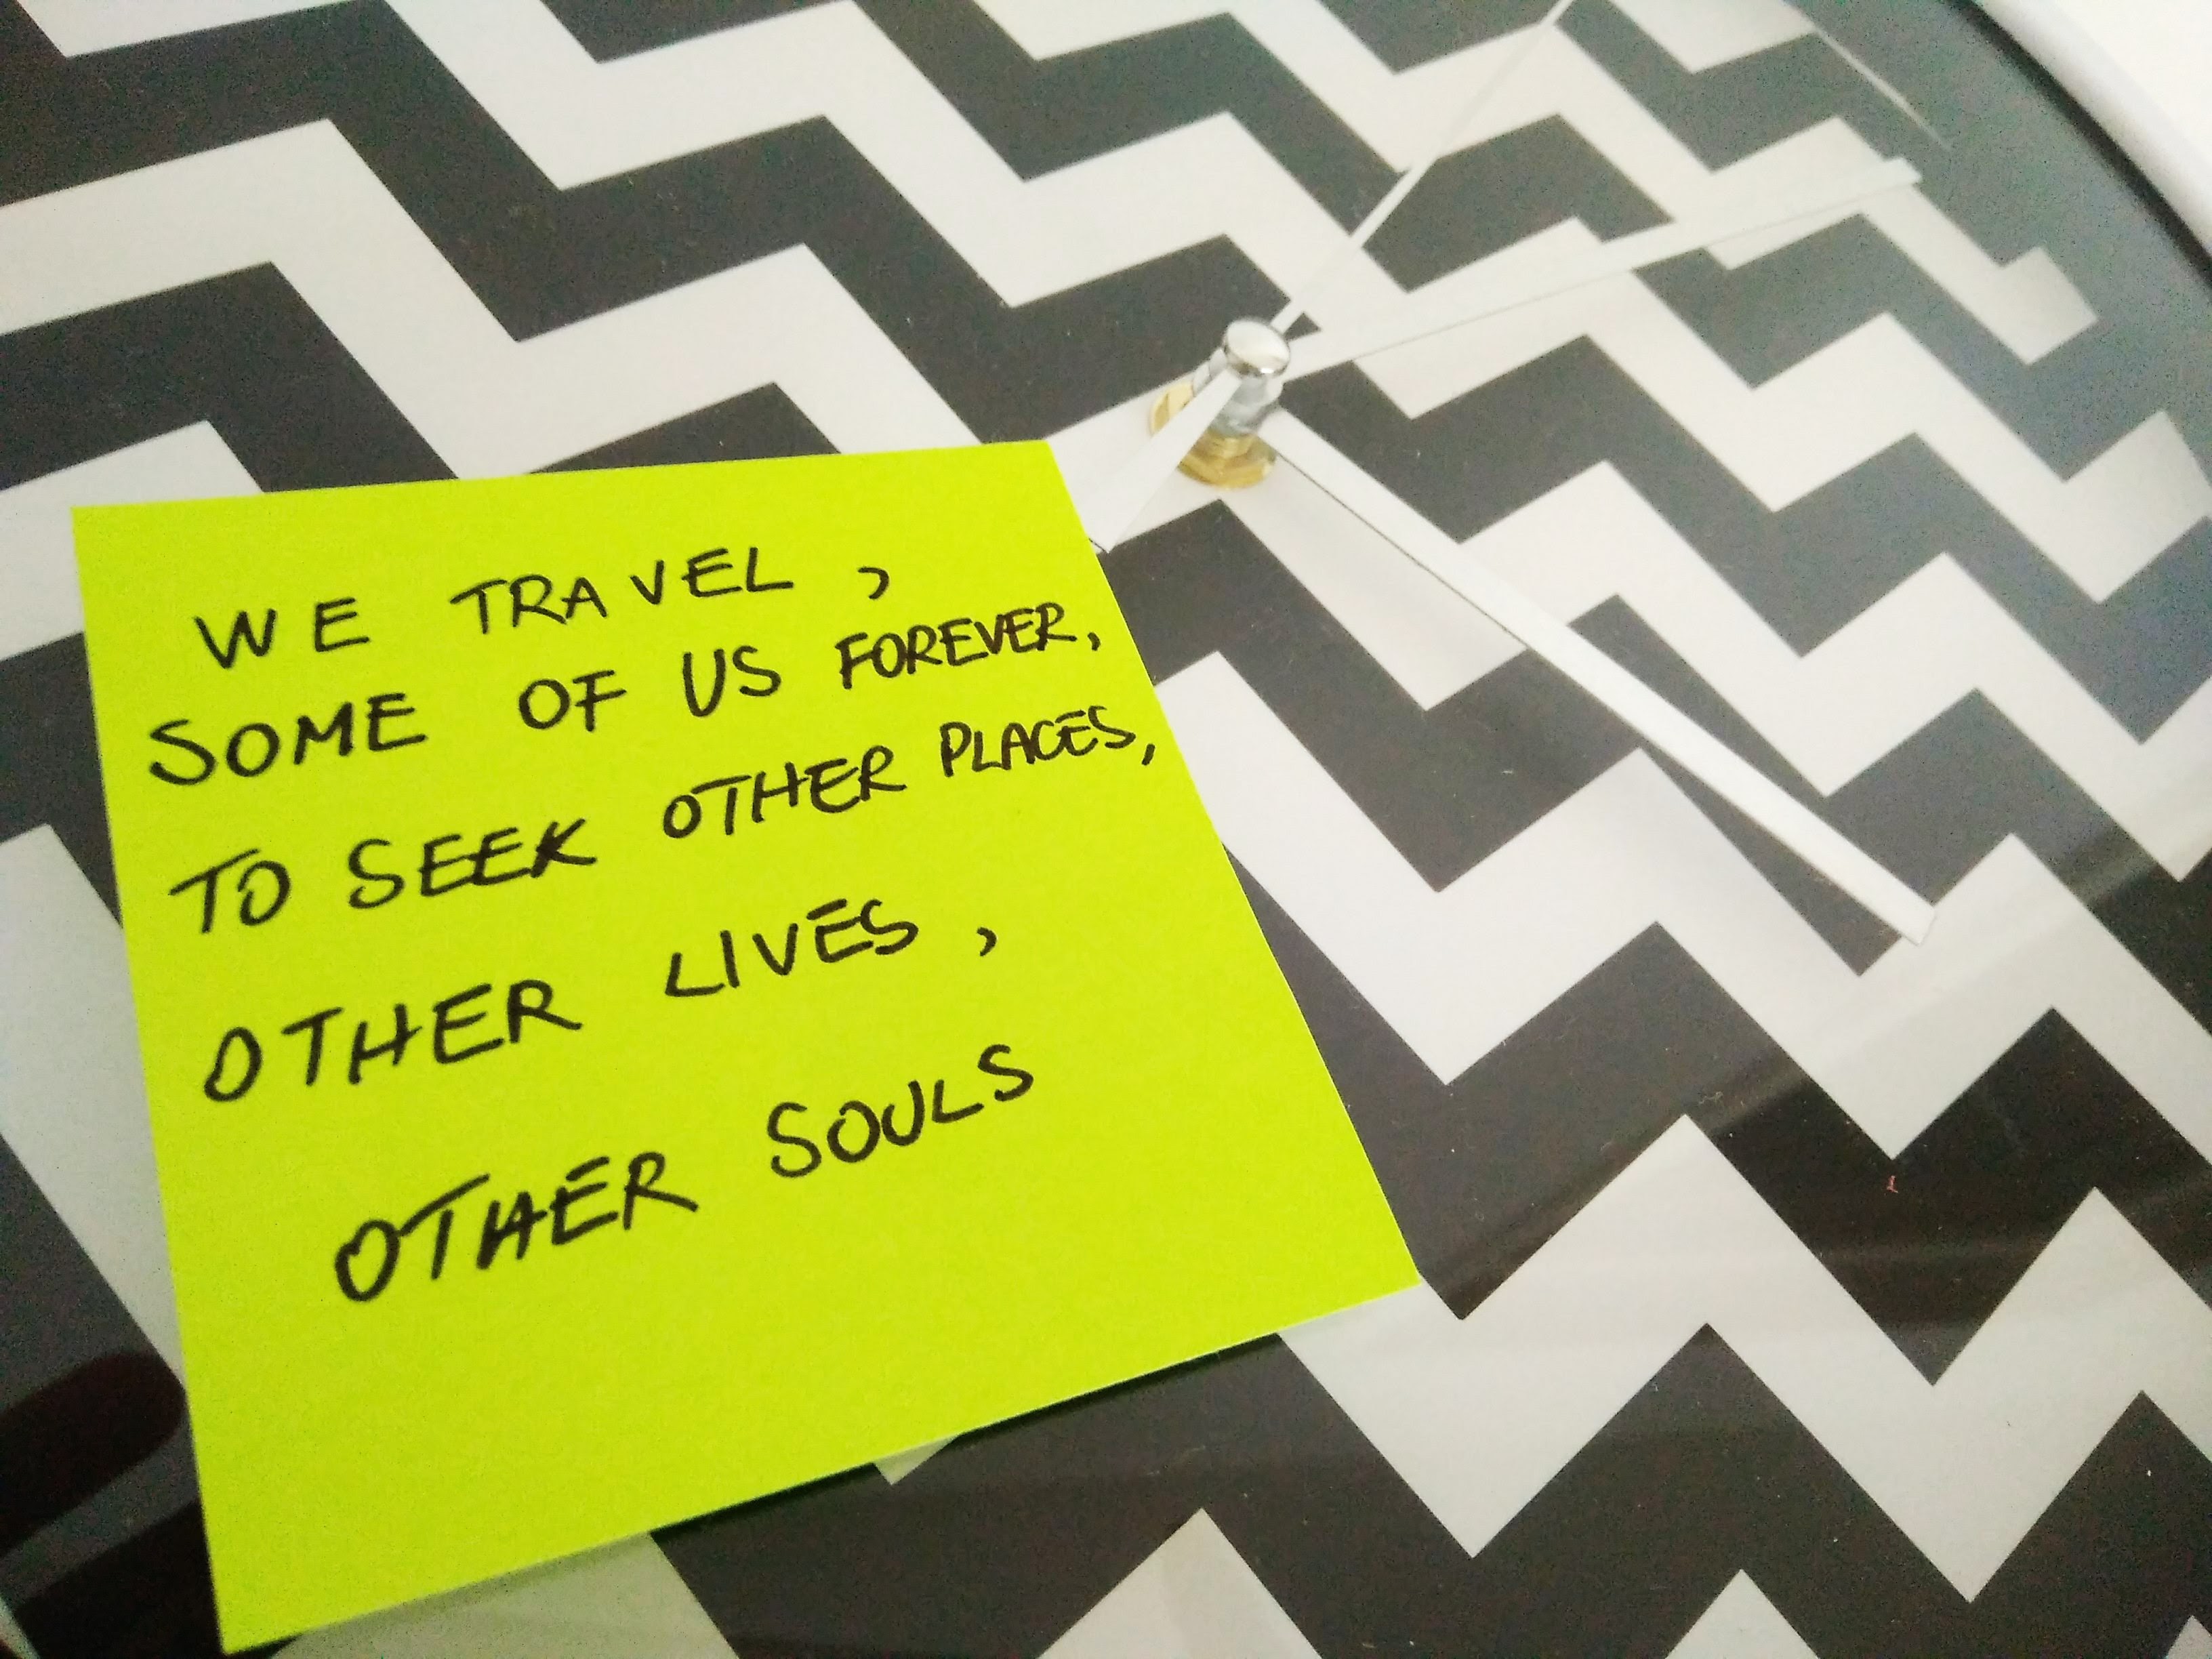 WE TRAVEL,
SOME OF US FOREVER,
TO SEEK OTHER PLACES,
OTHER LIVES,
OTHER SOULS